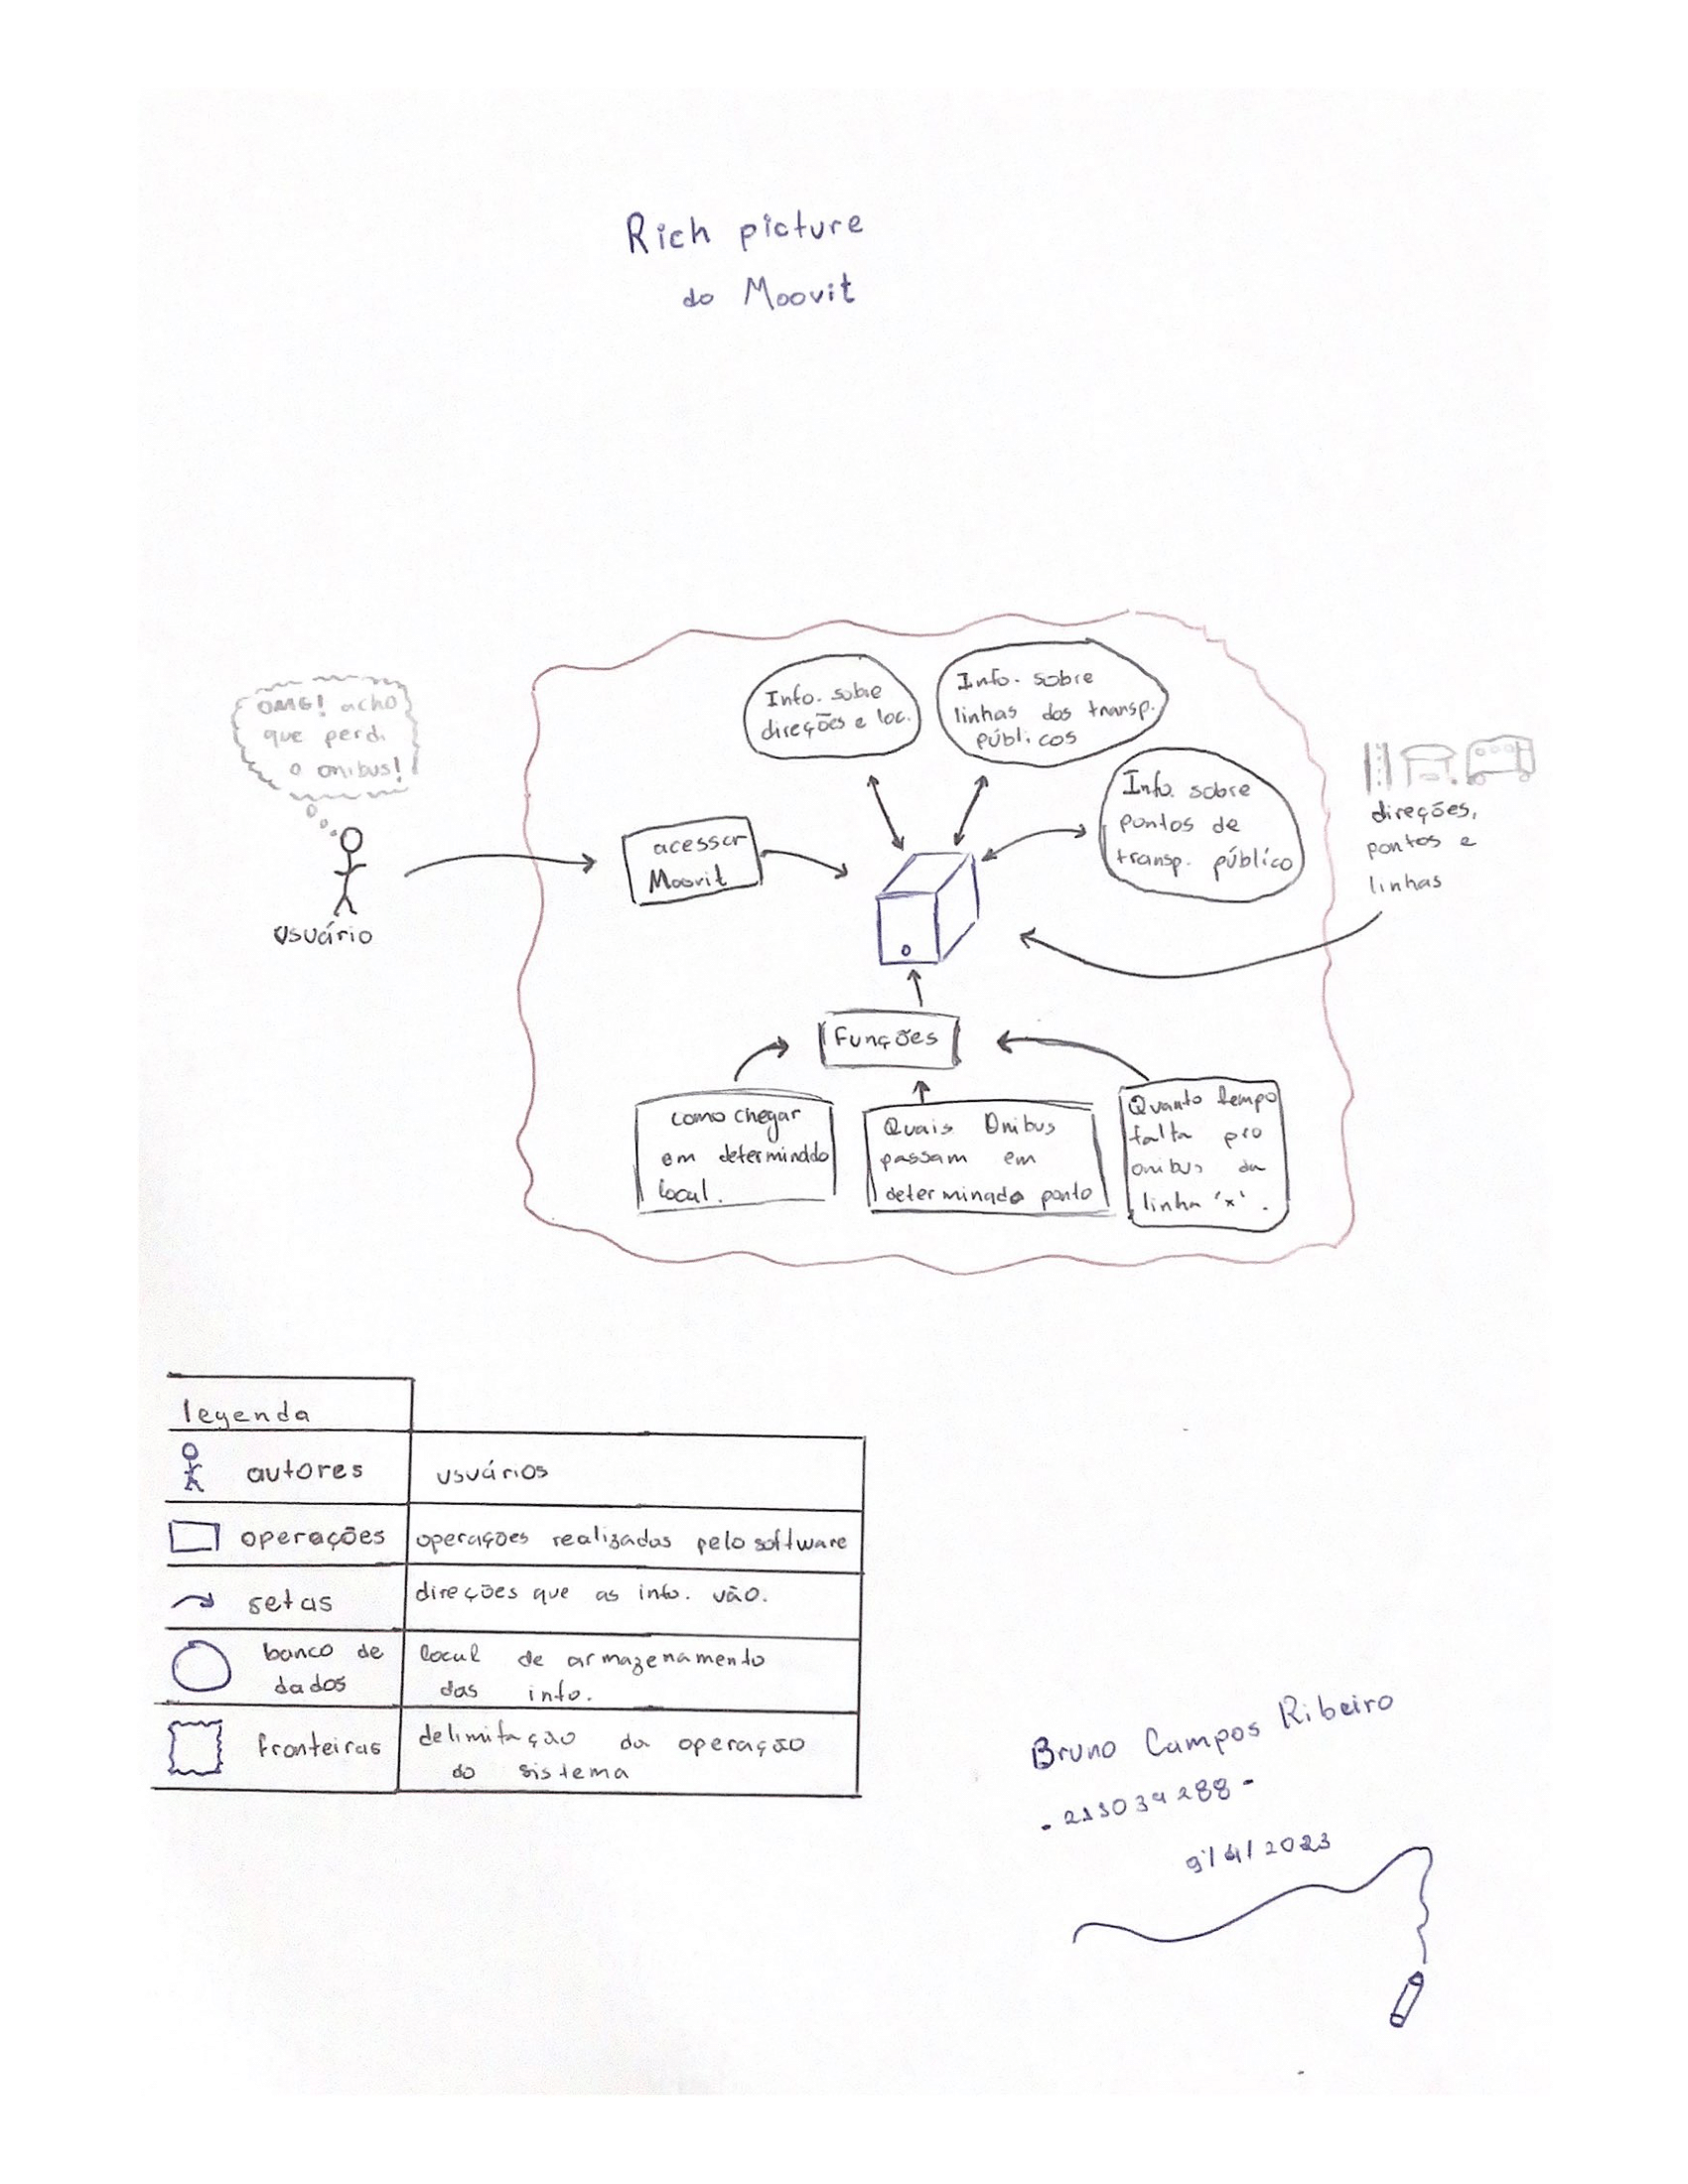 Rich picture
do Moovit
OMG! acho
que perdi
o onibus!
usuário
acessar
Moovit
Info. sobre
direções e loc.
Info. sobre
linhas dos transp.
públicos
Info. sobre
pontos de
transp. público
direções,
pontos e
linhas
Funções
como chegar
em determinado
local.
Quais Onibus
passam em
determinado ponto
Quanto tempo
falta pro
onibus da
linha 'x'.
legenda
autores
usuários
operações
operações realizadas pelo software
setas
direções que as info. vão.
banco de
dados
local de armazenamento
das info.
fronteiras
delimitação da operação
do sistema
Bruno Campos Ribeiro
9/4/2023